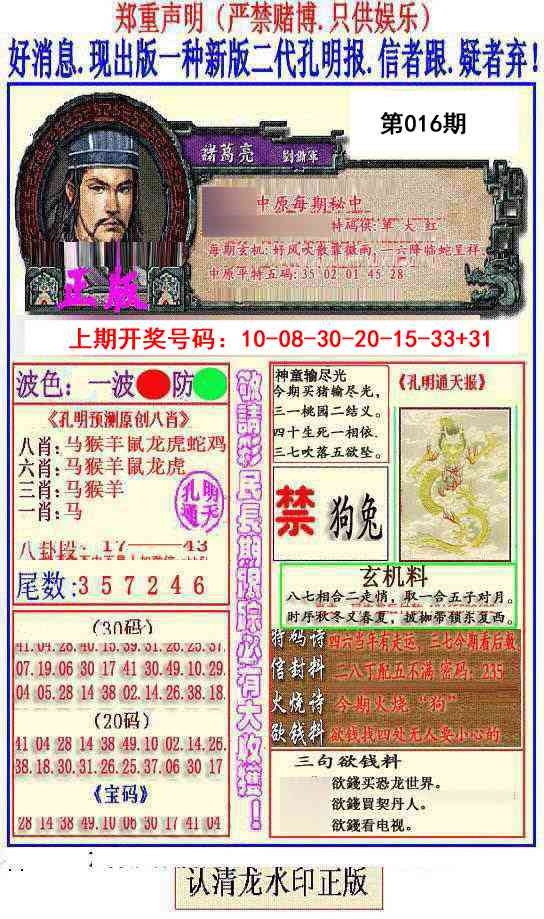 郑重声明（严禁赌博.只供娱乐）
好消息.现出版一种新版二代孔明报.信者跟.疑者弃！
第016期
諸葛亮 劉備軍
中原每期秘中
特码供:单 大 红
每期玄机:好风吹散靠微雨,二六降临蛇呈祥.
中原平特五码:35 02 01 45 28
正版
上期开奖号码：10-08-30-20-15-33+31
波色：一波 防
《孔明预测原创八肖》
八肖:马猴羊鼠龙虎蛇鸡
六肖:马猴羊鼠龙虎
三肖:马猴羊
一肖:马
孔明通天
八卦段：17——43
尾数:357246
（30码）
41.04.28.40.15.39.31.26.25.37
07.19.06.30 17 41 30.49.10.29.
04 05.28 14 38 02.14.26.38.18
（20码）
41 04 28 14 38 49.10 02.14.26.
38.18.30.31.26.25 37.06 30 17
《宝码》
28 14 38 49.10 06 30 17 41 04
敬請彩民長期跟踪必有大收獲！
神童输尽光
今期买猪输尽光,
三一桃园二结义。
四十生死一相依.
三七吹落五欲坠。
《孔明通天报》
禁 狗兔
玄机料
八七相合二走俏，取一合五子对月。
时序秋冬又春夏，披枷带锁东复西。
特码诗 四六当年有走运，三七今期看后数
信封料 二八丁配五不满 密码：235
火烧诗 今期火烧“狗”
欲钱料 欲钱找四处无人要小心的
三句欲钱料
欲錢买恐龙世界。
欲錢買契丹人。
欲錢看电视。
认清龙水印正版